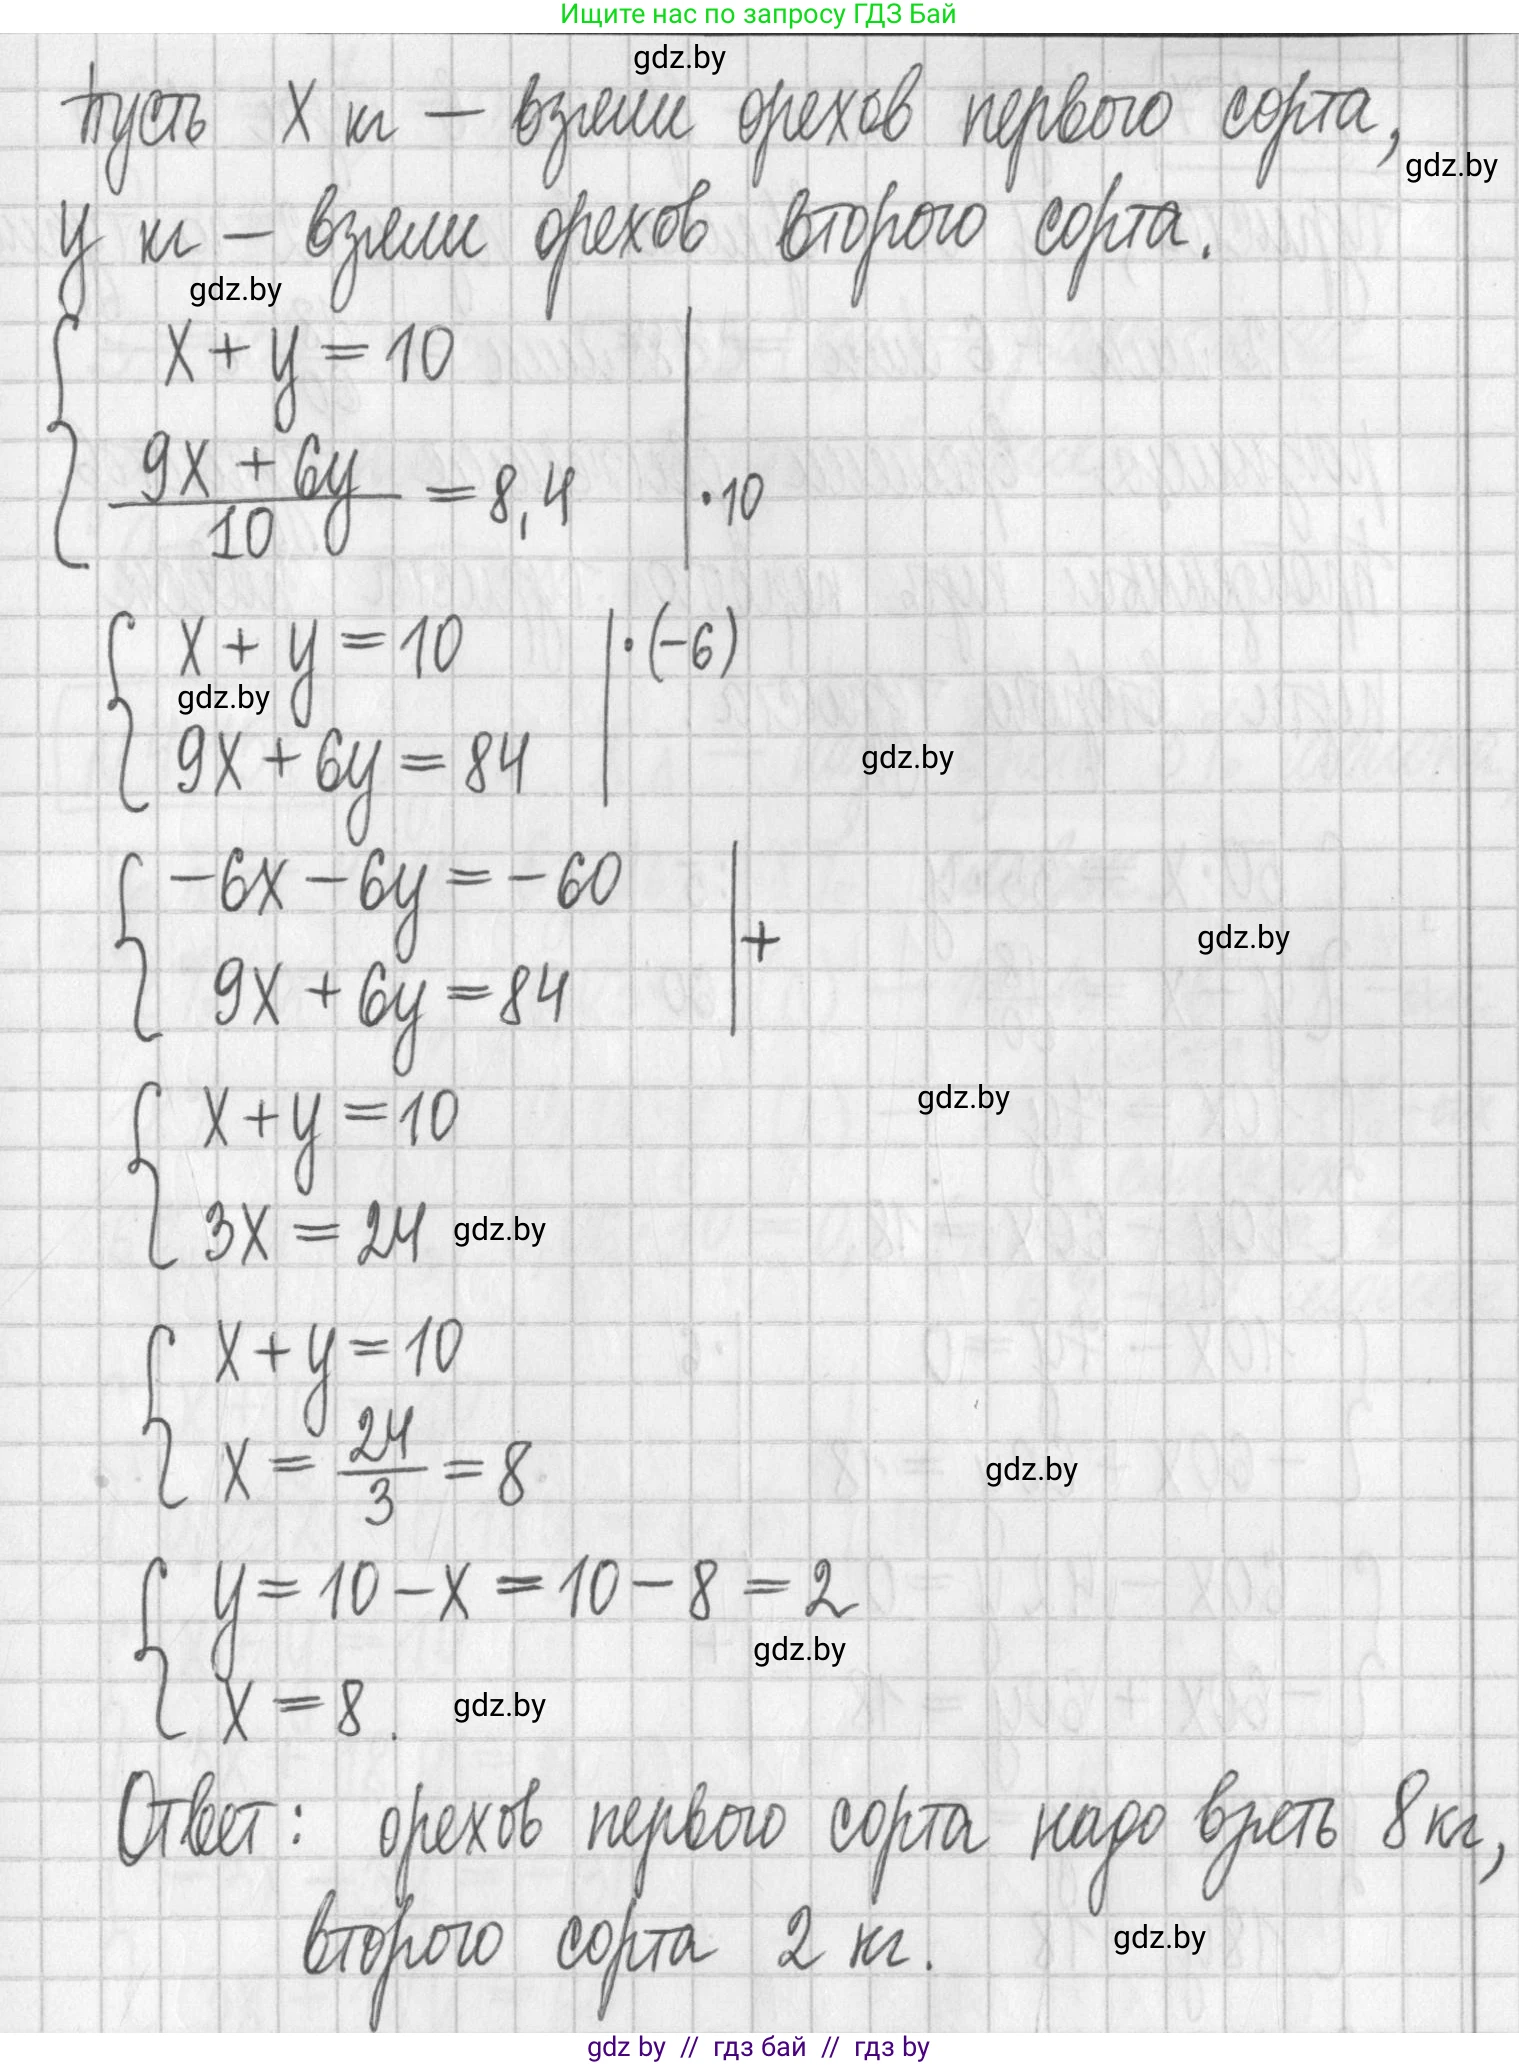 Ищите нас по запросу ГДЗ Бай
gdz.by
Пусть x кг – взяли орехов первого сорта,
gdz.by
y кг – взяли орехов второго сорта.
gdz.by
x + y = 10
9x + 6y
10
= 8,4 | · 10
x + y = 10 | · (−6)
gdz.by
9x + 6y = 84
gdz.by
−6x − 6y = −60
gdz.by
+
9x + 6y = 84
gdz.by
x + y = 10
3x = 24 gdz.by
x + y = 10
x = 24/3 = 8
gdz.by
y = 10 − x = 10 − 8 = 2
gdz.by
x = 8. gdz.by
Ответ: орехов первого сорта надо взять 8 кг,
второго сорта 2 кг. gdz.by
gdz by // гдз бай // гдз by